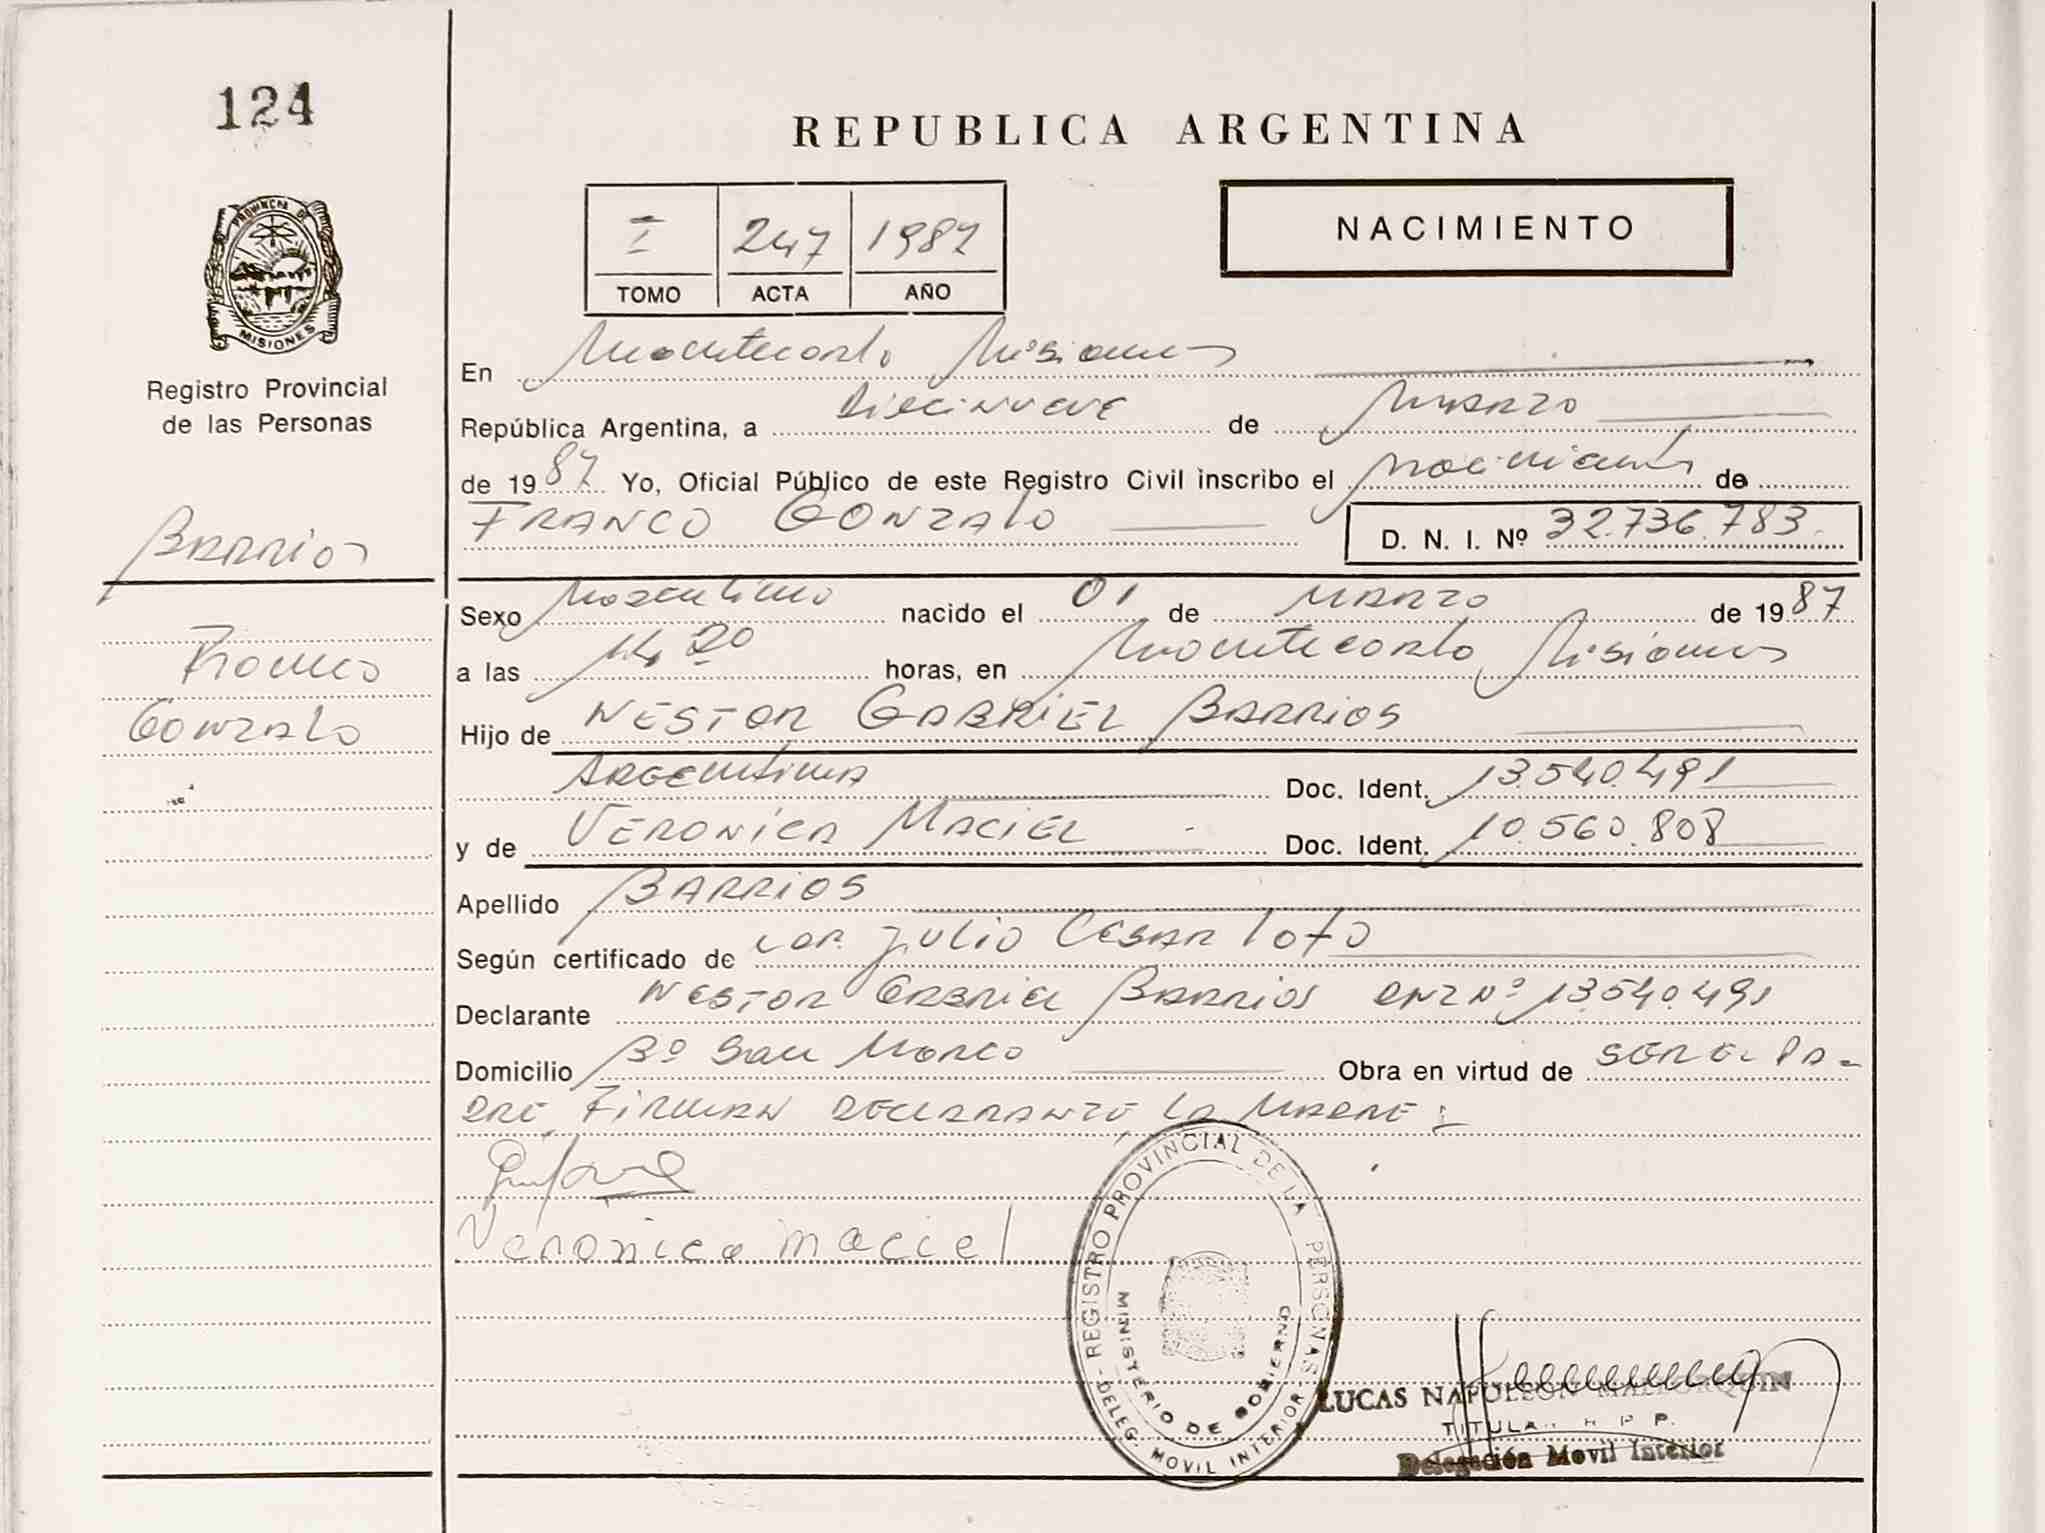 124
REPUBLICA ARGENTINA
NACIMIENTO
I 247 1987
TOMO ACTA AÑO
PROVINCIA DE
MISIONES
Registro Provincial
de las Personas
Barrios
Franco
Gonzalo
En Montecarlo Misiones
República Argentina, a Diecinueve de Marzo
de 1987 Yo, Oficial Público de este Registro Civil inscribo el nacimiento de
FRANCO GONZALO D. N. I. Nº 32.736.783
Sexo Masculino nacido el 01 de Marzo de 1987
a las 14,20 horas, en Montecarlo Misiones
Hijo de NESTOR GABRIEL BARRIOS
Argentina Doc. Ident. 13.540.491
y de VERONICA MACIEL Doc. Ident. 10.560.808
Apellido BARRIOS
Según certificado de Julio Cesar
Declarante Nestor Gabriel Barrios DNI Nº 13.540.491
Domicilio Bº San Marco Obra en virtud de SER EL PA-
DRE, FIRMAN DECLARANTE, LA MADRE:
Veronica maciel
REGISTRO PROVINCIAL DE LA PERSONAS
MINISTERIO DE GOBIERNO
DELEG. MOVIL INTERIOR
LUCAS NAPOLEON MALLORQUIN
TITULAR R P P.
Delegación Movil Interior